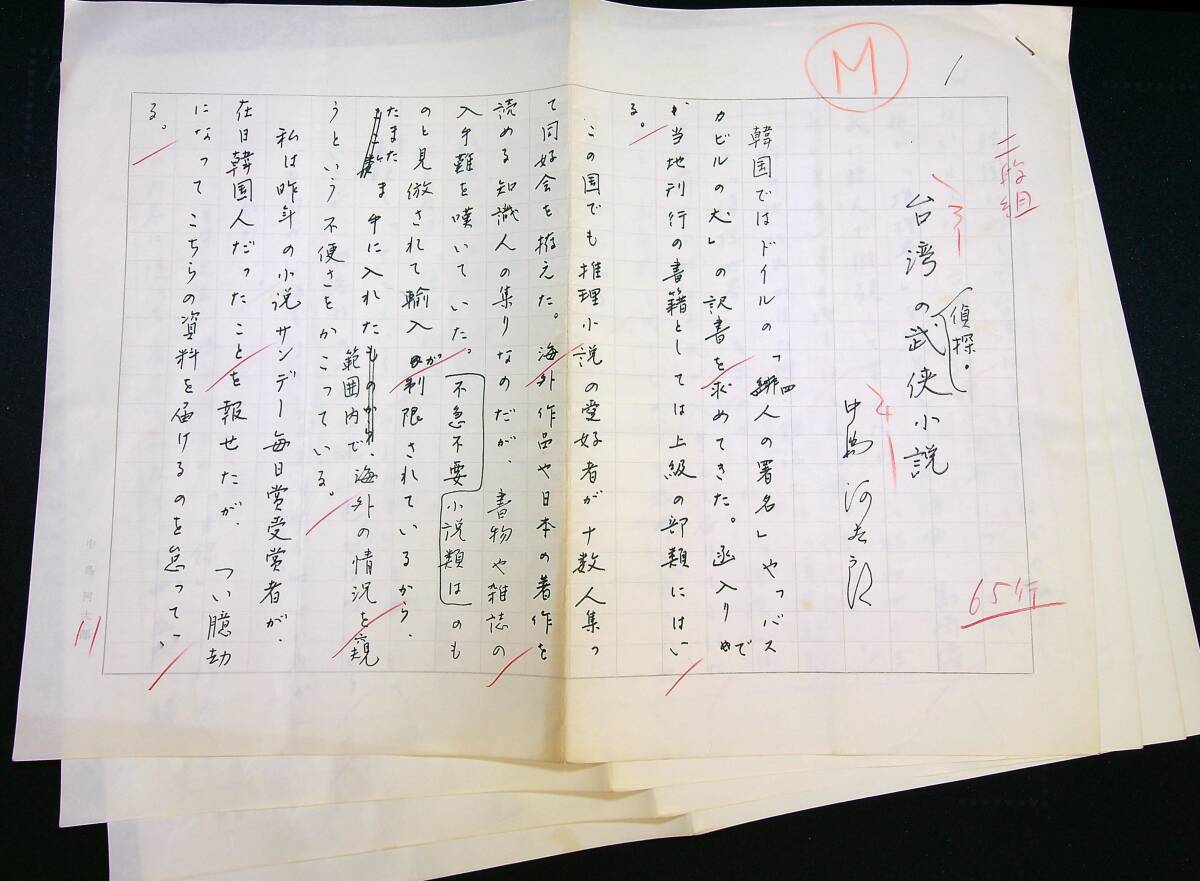 1
M
二段組
3
台湾の偵探・武侠小説
4
中島河太郎
65行
韓国ではドイルの「四人の署名」や「バス
カビルの犬」の訳書を求めてきた。函入りで
当地刊行の書籍としては上級の部類にはい
る。
この国でも推理小説の愛好者が十数人集っ
て同好会を拵えた。海外作品や日本の著作を
読める知識人の集りなのだが、書物や雑誌の
入手難を嘆いていた。小説類は不急不要のも
のと見倣されて輸入が制限されているから、
たまたま手に入れた範囲内で、海外の情況を窺
うという不便さをかこっている。
私は昨年の小説サンデー毎日賞受賞者が、
在日韓国人だったことを報せたが、つい臆劫
になってこちらの資料を届けるのを怠ってい
る。
11
中島河太郎